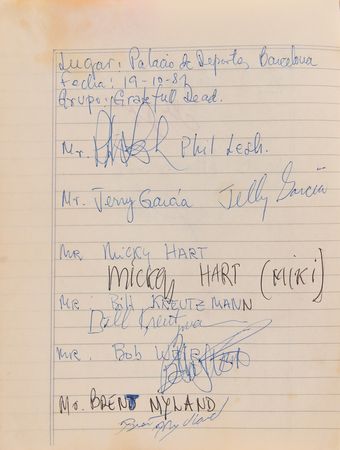 Lugar: Palacio de Deportes, Barcelona
Fecha: 19-10-81
Grupo: Gratefull Dead.
Mr. Phil Lesh.
Mr. Jerry Garcia Jerry Garcia
MR MICKY HART
MICKEY HART (MiKi)
MR. Bill KREUTZMANN
Bill Kreutzmann
MR. Bob Weir
Mr. BRENT MYLAND
Brent Mydland